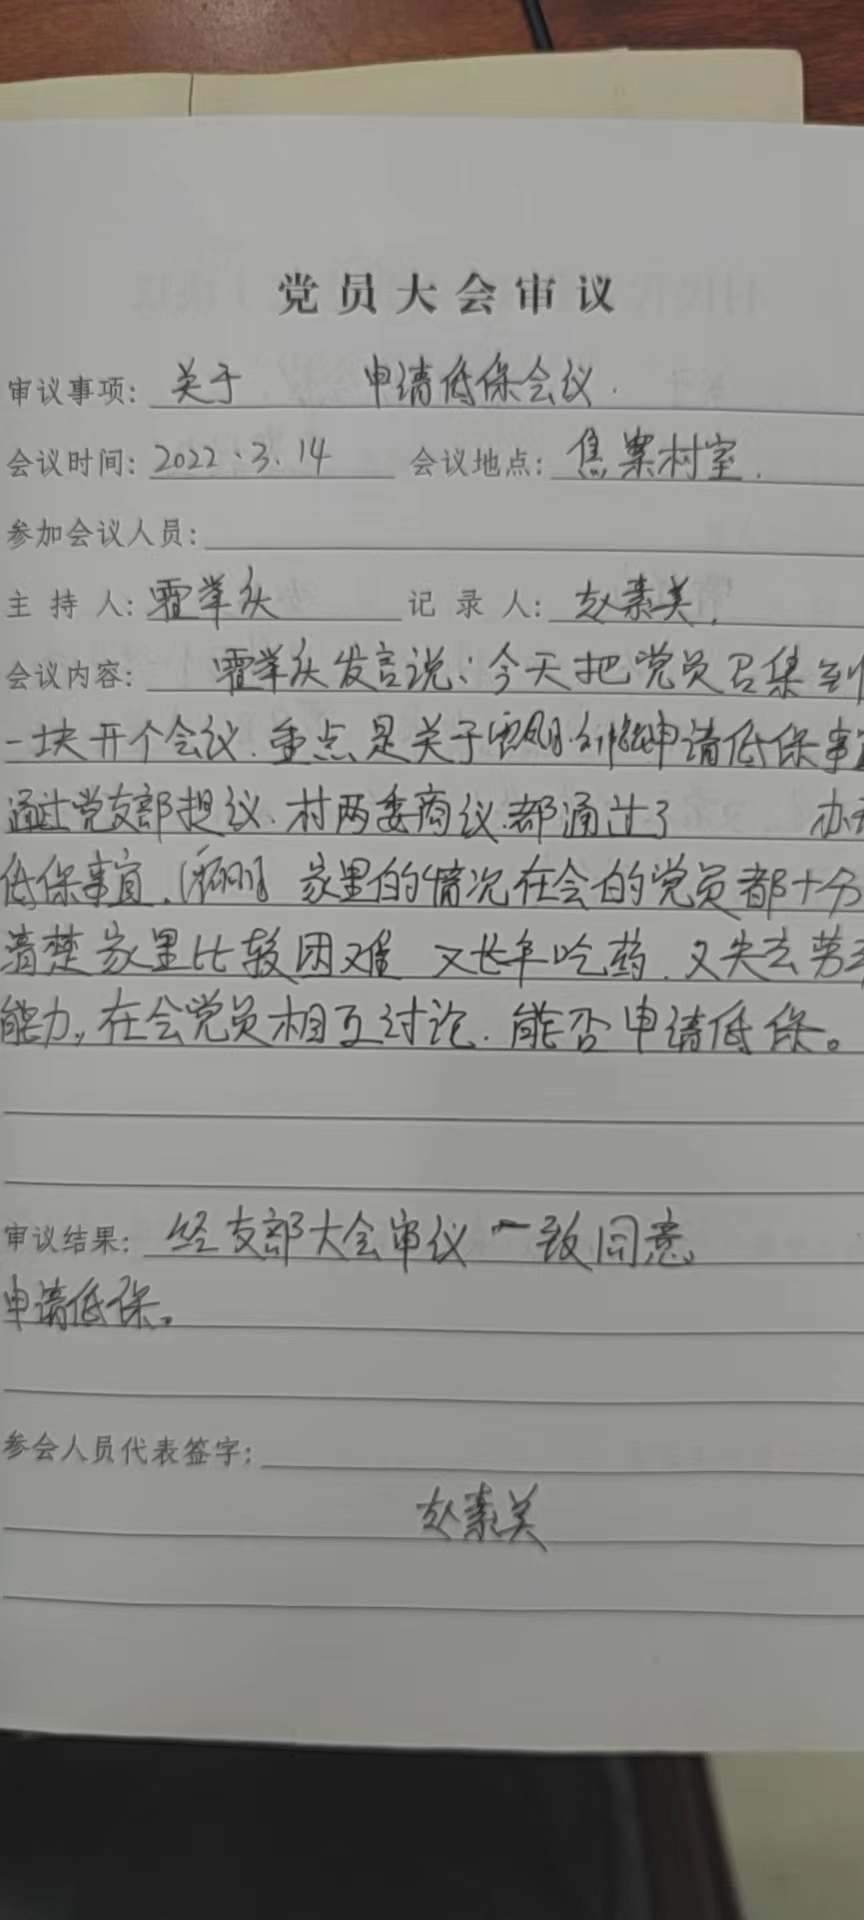 党员大会审议
审议事项: 关于 申请低保会议.
会议时间: 2022.3.14 会议地点: 焦寨村室.
参加会议人员:
主 持 人: 霍举 记 录 人: 赵素美.
会议内容: 霍举 发言说:今天把党员召集到
一块开个会议.重点是关于 申请低保事宜
通过党支部提议.村两委商议.都通过了 办
低保事宜. 家里的情况在会的党员都十分
清楚家里比较困难 又长年吃药.又失去劳
能力,在会党员相互讨论.能否申请低保。
审议结果: 经支部大会审议 一致同意
申请低保。
参会人员代表签字:
赵素美